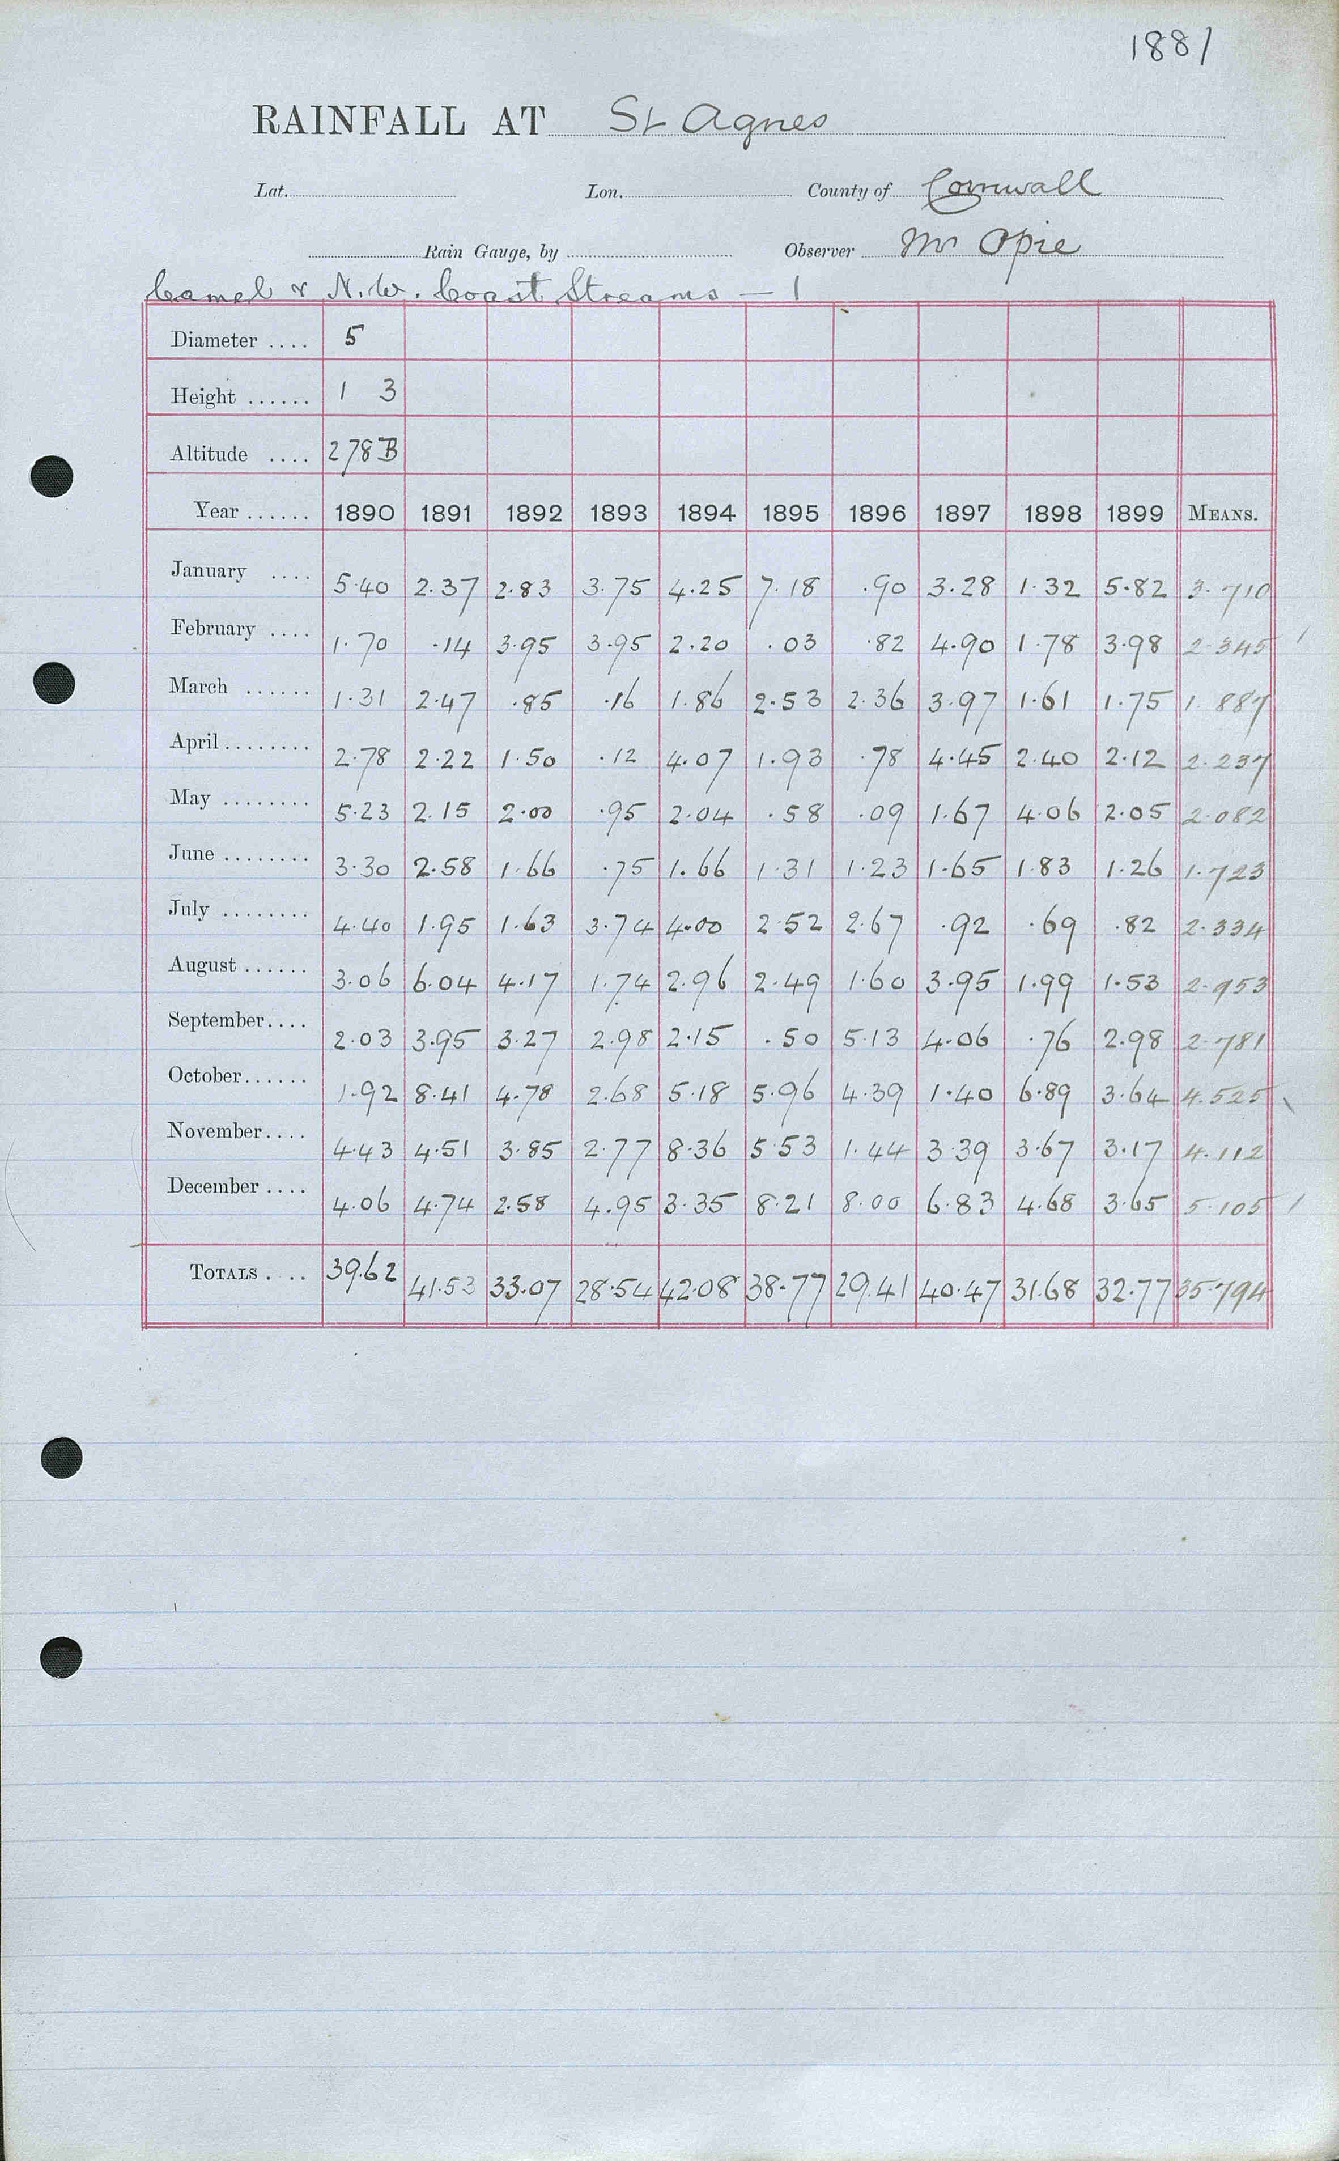 1881
RAINFALL AT St Agnes
Lat. Lon. County of Cornwall
Rain Gauge, by Observer Mr Opie
Camel & N.W. Coast Streams — 1
Diameter .... 5
Height ...... 1 3
Altitude .... 278 B
Year ...... 1890 1891 1892 1893 1894 1895 1896 1897 1898 1899 MEANS.
January .... 5.40 2.37 2.83 3.75 4.25 7.18 .90 3.28 1.32 5.82 3.710
February .... 1.70 .14 3.95 3.95 2.20 .03 .82 4.90 1.78 3.98 2.345
March ...... 1.31 2.47 .85 .16 1.86 2.53 2.36 3.97 1.61 1.75 1.887
April ........ 2.78 2.22 1.50 .12 4.07 1.93 .78 4.45 2.40 2.12 2.237
May ........ 5.23 2.15 2.00 .95 2.04 .58 .09 1.67 4.06 2.05 2.082
June ........ 3.30 2.58 1.66 .75 1.66 1.31 1.23 1.65 1.83 1.26 1.723
July ........ 4.40 1.95 1.63 3.74 4.00 2.52 2.67 .92 .69 .82 2.334
August ...... 3.06 6.04 4.17 1.74 2.96 2.49 1.60 3.95 1.99 1.53 2.953
September .... 2.03 3.95 3.27 2.98 2.15 .50 5.13 4.06 .76 2.98 2.781
October ...... 1.92 8.41 4.78 2.68 5.18 5.96 4.39 1.40 6.89 3.64 4.525
November .... 4.43 4.51 3.85 2.77 8.36 5.53 1.44 3.39 3.67 3.17 4.112
December .... 4.06 4.74 2.58 4.95 3.35 8.21 8.00 6.83 4.68 3.65 5.105
TOTALS .... 39.62 41.53 33.07 28.54 42.08 38.77 29.41 40.47 31.68 32.77 35.794